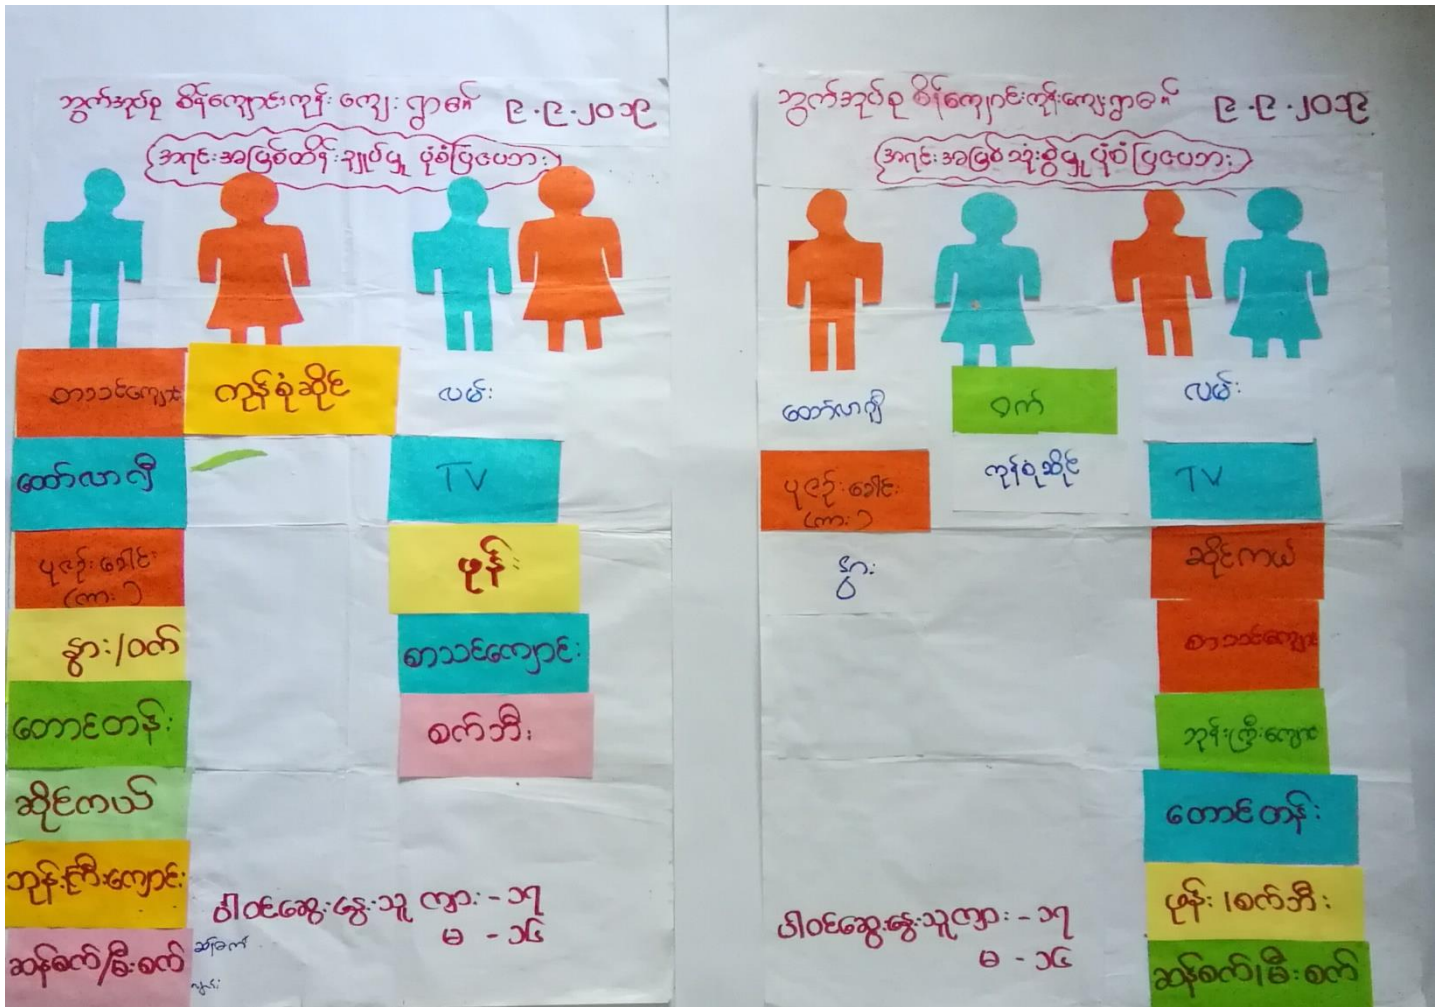 ဘွက်အုပ်စု စိန်ကျောင်းကုန်း ကျေးရွာ ၉.၉.၂၀၁၉
အရင်းအမြစ်ထိန်းချုပ်မှု ပုံစံပြဇယား
စာသင်ကျောင်း
ကုန်စုံဆိုင်
လမ်း
ထော်လာဂျီ
TV
ပုဇဉ်းခေါင်း
(ကား)
ဖုန်း
နွား/ဝက်
စာသင်ကျောင်း
တောင်တန်း
စက်ဘီး
ဆိုင်ကယ်
ဘုန်းကြီးကျောင်း
ဆန်စက်/မီးစက်
ပါဝင်ဆွေးနွေးသူ ကျား - ၁၇
မ - ၁၆
ဘွက်အုပ်စု စိန်ကျောင်းကုန်းကျေးရွာ ၉.၉.၂၀၁၉
အရင်းအမြစ်သုံးစွဲမှု ပုံစံပြဇယား
ထော်လာဂျီ
ဝက်
လမ်း
ပုဇဉ်းခေါင်း
(ကား)
ကုန်စုံဆိုင်
TV
နွား
ဆိုင်ကယ်
စာသင်ကျောင်း
ဘုန်းကြီးကျောင်း
တောင်တန်း
ဖုန်း/စက်ဘီး
ဆန်စက်/မီးစက်
ပါဝင်ဆွေးနွေးသူကျား - ၁၇
မ - ၁၆